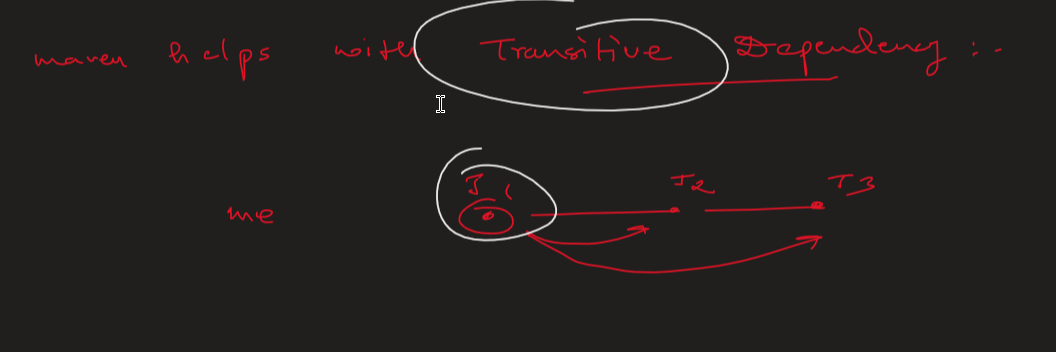 maven helps with Transitive Dependency :-
J1 J2 J3
me